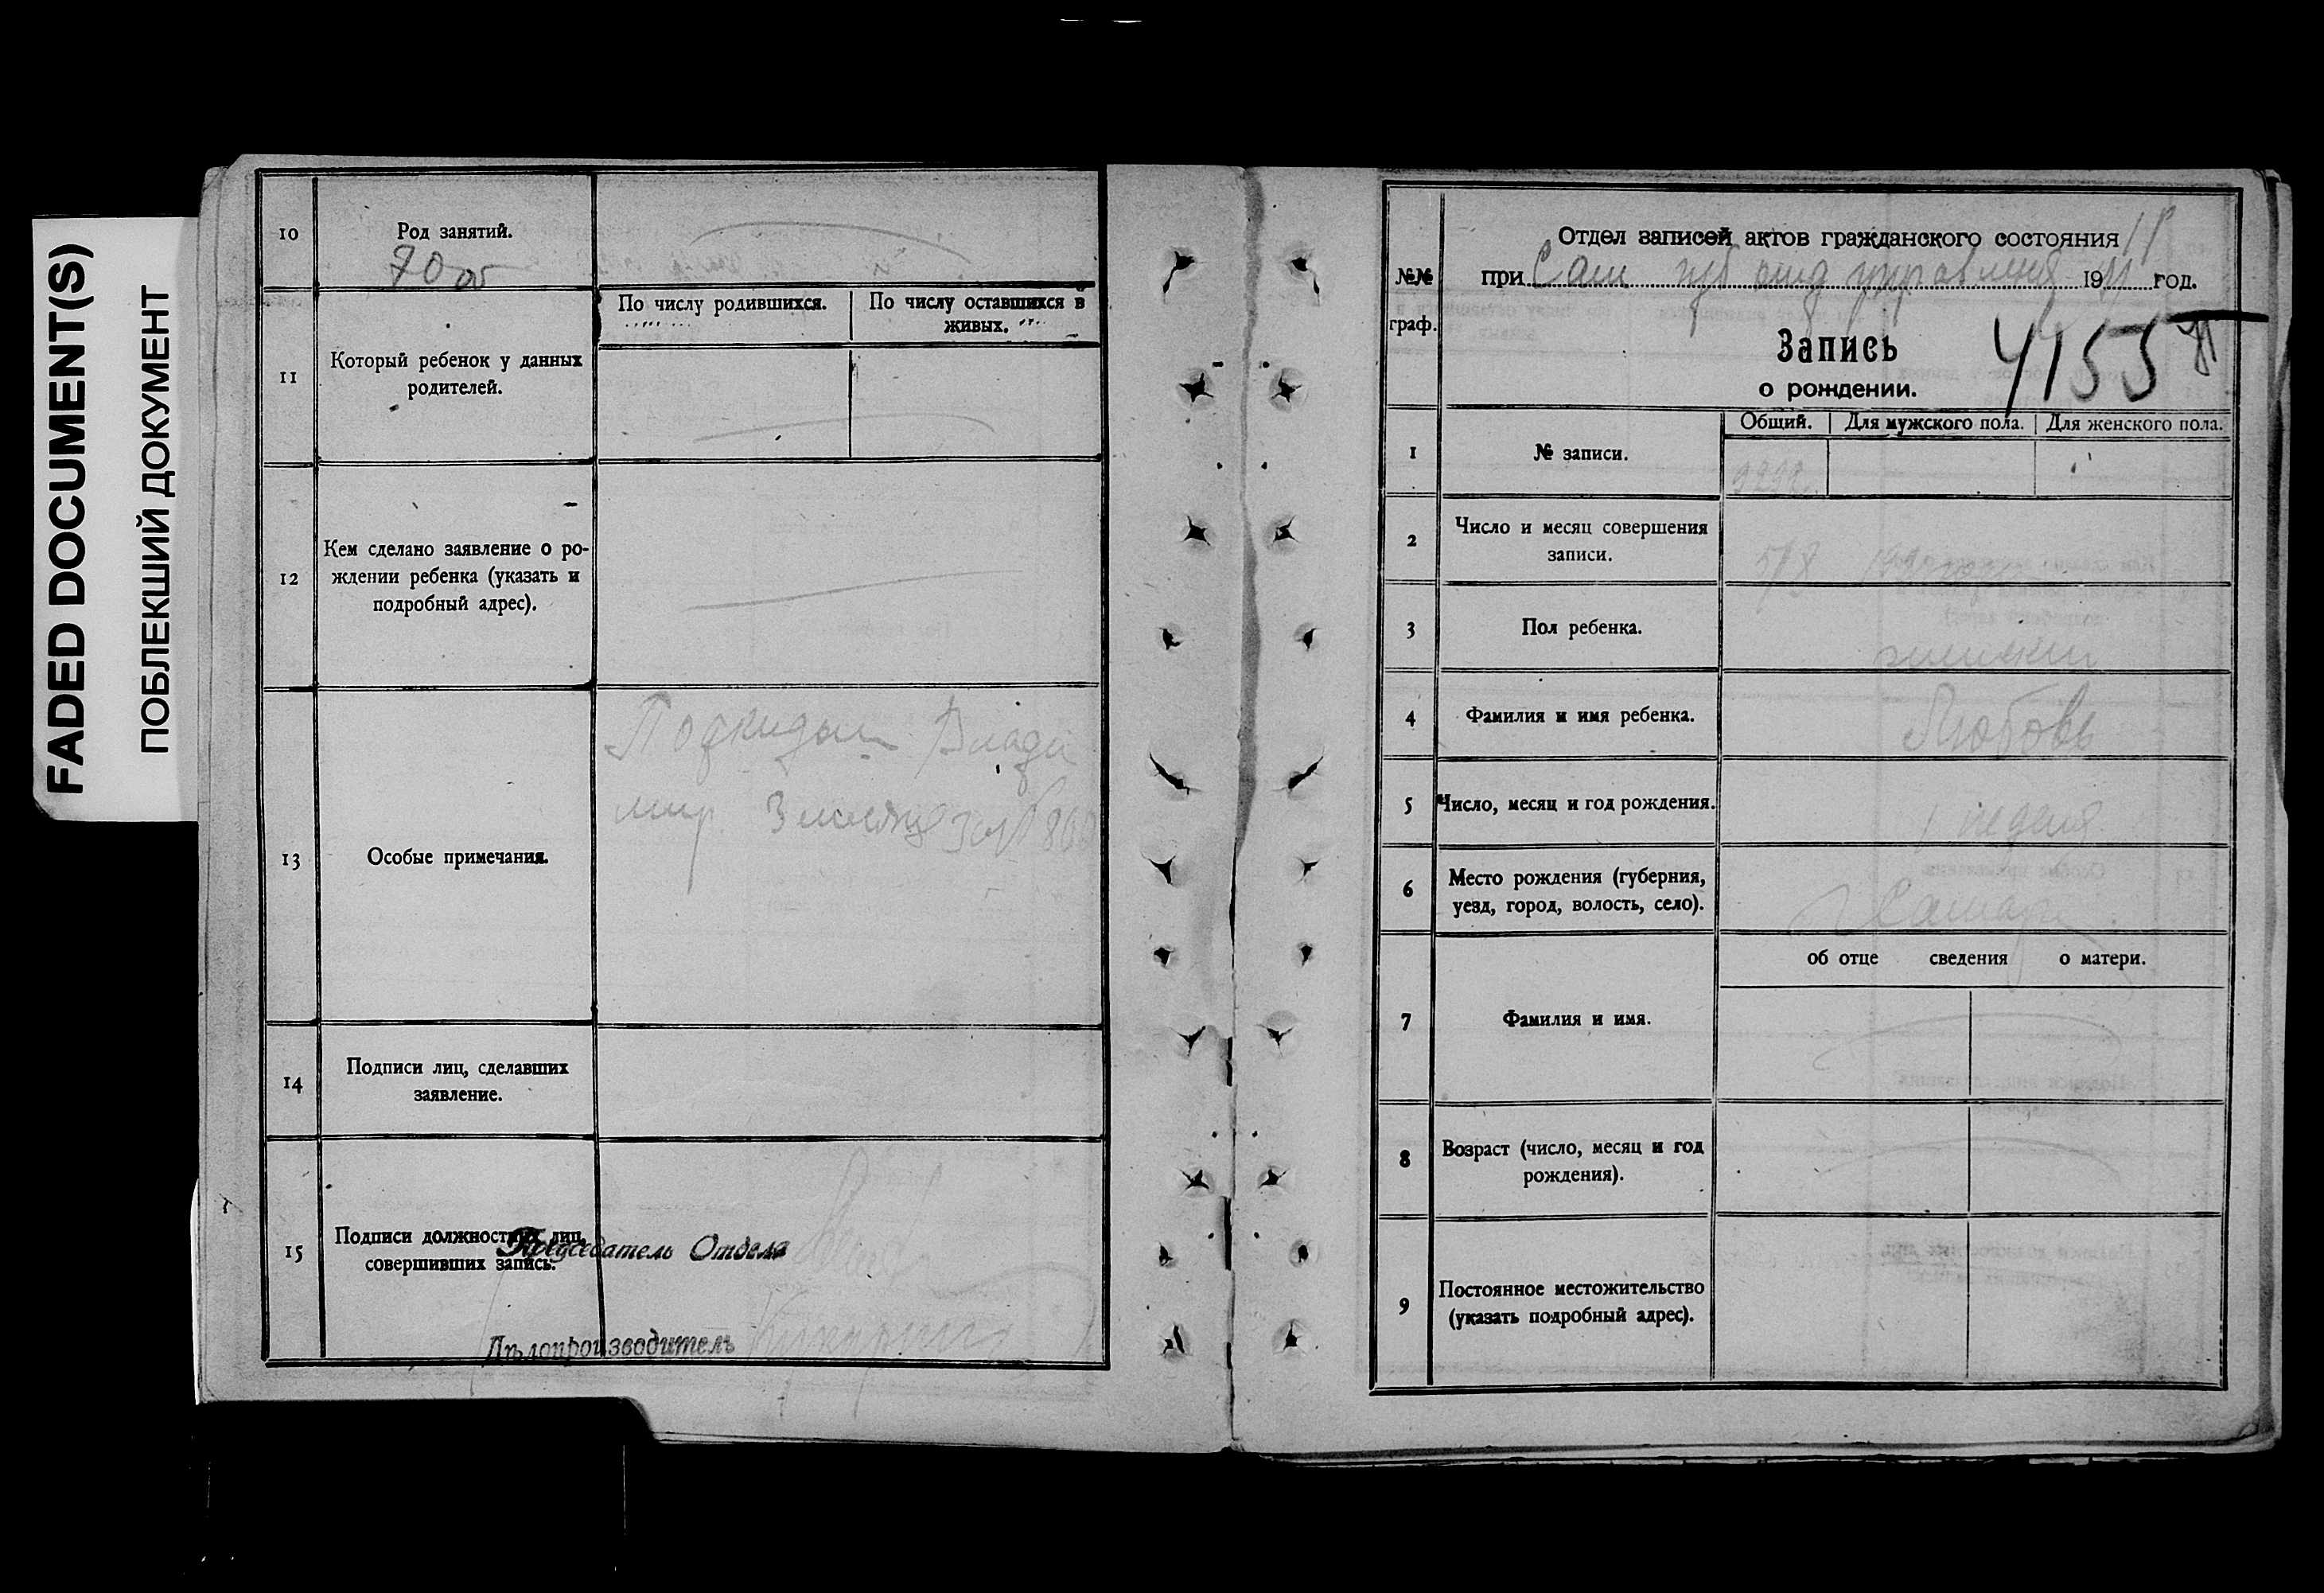 FADED DOCUMENT(S)
ПОБЛЕКШИЙ ДОКУМЕНТ
10
Род занятий.
11
Который ребенок у данных
родителей.
По числу родившихся.
По числу оставшихся в
живых.
12
Кем сделано заявление о ро-
ждении ребенка (указать и
подробный адрес).
13
Особые примечания.
Подкидыш Влади
мир
14
Подписи лиц, сделавших
заявление.
15
Подписи должностных лиц,
совершивших запись.
Председатель Отдела
Дѣлопроизводитель
№№
граф.
Отдел записей актов гражданского состояния
при Сам губ отд управления 19 год.
Запись
о рождении.
4155
1
№ записи.
Общий.
Для мужского пола.
Для женского пола.
2
Число и месяц совершения
записи.
3
Пол ребенка.
4
Фамилия и имя ребенка.
Любовь
5
Число, месяц и год рождения.
1 неделя
6
Место рождения (губерния,
уезд, город, волость, село).
г Самара
об отце сведения о матери.
7
Фамилия и имя.
8
Возраст (число, месяц и год
рождения).
9
Постоянное местожительство
(указать подробный адрес).